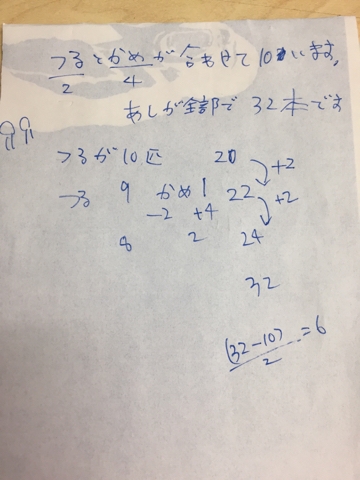 つるとかめが合わせて10います,
2 4
あしが全部で 32本です
つるが10匹 20 +2
つる 9 かめ 1 22 +2
-2 +4
8 2 24
32
(32-10)/2 =6